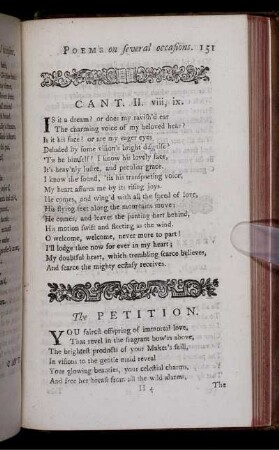 POEMS on several occasions. 151
CANT. II. viii, ix.
IS it a dream? or does my ravish'd ear
The charming voice of my beloved hear?
Is it his face? or are my eager eyes
Deluded by some vision's bright disguise?
'Tis he himself! I know his lovely face,
It's heav'nly lustre, and peculiar grace.
I know the sound, 'tis his transporting voice,
My heart assures me by its rising joys.
He comes, and wing'd with all the speed of love,
His flying feet along the mountains move;
He comes, and leaves the panting hart behind,
His motion swift and fleeting as the wind.
O welcome, welcome, never more to part!
I'll lodge thee now for ever in my heart;
My doubtful heart, which trembling scarce believes,
And scarce the mighty ecstasy receives.
The PETITION.
YOU fairest offspring of immortal love,
That revel in the fragrant bow'rs above,
The brightest products of your Maker's skill,
In visions to the gentle maid reveal
Your glowing beauties, your celestial charms,
And free her breast from all the wild alarms,
H 4 The